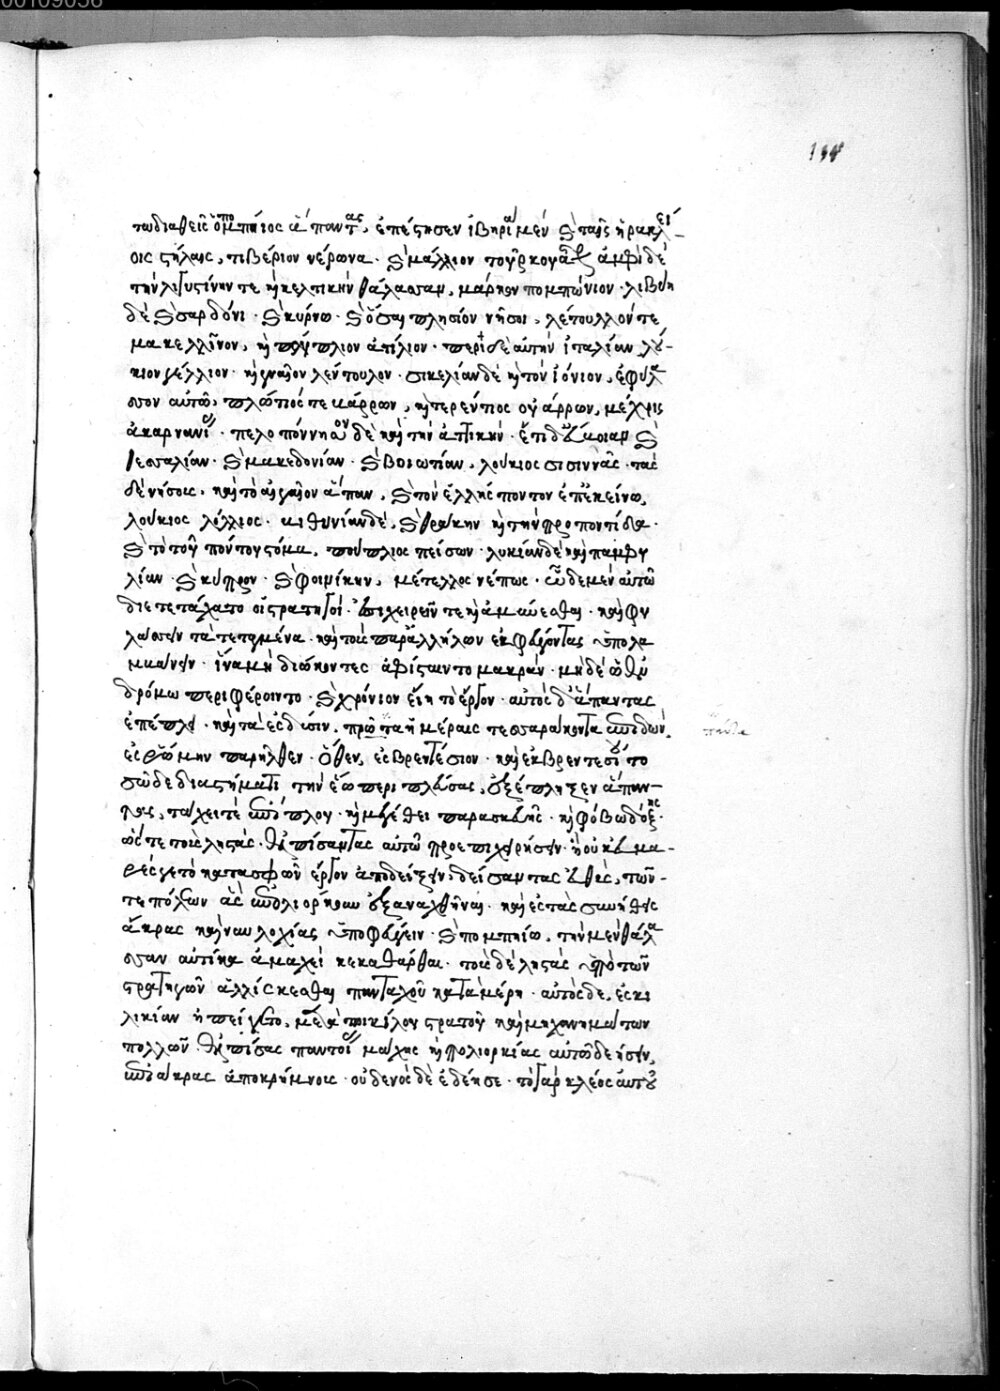 τωδιαθεὶς ὁ πομπήιος ἅπαντας, ἐπέστησεν ἰβηρία μὲν καὶ ταῖς ἡρακλεί-
οις στήλαις, τιβέριον νέρωνα· καὶ μάλλιον τουρκουᾶτον ἀμφὶ δὲ
τὴν λιγυστίνην τε καὶ κελτικὴν θάλασσαν, μάρκον πομπώνιον· λιβύη
δὲ καὶ σαρδόνι· καὶ κύρνω· καὶ ὅσαι πλησίον νῆσοι, λέτουλλόν τε
μακελλῖνον, καὶ πούπλιον ἀτίλιον· περὶ δὲ αὐτὴν ἰταλίαν λύ-
κιον γέλλιον· καὶ γναῖον λέντουλον· σικελίαν δὲ καὶ τὸν ἰόνιον, ἐφύλα
σσον αὐτῶ, πλώτιός τε κάρρων, καὶ τερέντιος οὐάρρων, μέχρις
ἀκαρνανίας· πελοπόννησον δὲ καὶ τὴν ἀττικήν· ἔτι δ' εὔβοιαν καὶ
θεσσαλίαν· καὶ μακεδονίαν· καὶ βοιωτίαν, λούκιος σισιννᾶς· τὰς
δὲ νήσοις, καὶ τὸ αἰγαῖον ἅπαν, καὶ τὸν ἑλλήσποντον ἐπ' ἐκείνω,
λούκιος λόλλιος· βιθυνίαν δὲ, καὶ θράκην καὶ τὴν προποντίδα·
καὶ τὸ τοῦ πόντου στόμα, πούπλιος πείσων· λυκίαν δὲ καὶ παμφυ
λίαν· καὶ κύπρον· καὶ φοινίκην, μέτελλος νέπως· ὧδε μὲν αὐτῶ
διετετάχατο οἱ στρατηγοί· ἐπιχειρεῖν τε καὶ ἀμύνεσθαι· καὶ φυ
λάσσειν τὰ τεταγμένα· καὶ τοὺς παρ' ἀλλήλων ἐκφεύγοντας ὑπολα
μβάνειν· ἵνα μὴ διώκοντες ἀφίσταιντο μακρὰν· μὴ δὲ ὡς ἐν
δρόμω περιφέροιντο· καὶ χρόνιον εἴη τὸ ἔργον· αὐτὸς δ' ἅπαντας
ἐπέπλει· καὶ τὰ ἐς δύσιν, πρῶτα ἡμέραις τεσσαράκοντα ἐπιδὼν,
ἐς ῥώμην παρῆλθεν· ὅθεν, ἐς βρεντέσιον· καὶ ἐκ βρεντεσίου τὸ
σῶδε διαστήματι τὴν ἕω περιπλεύσας, ἐξέπληξεν ἅπαν-
τας, τάχει τὲ ἐπίπλου· καὶ μεγέθει παρασκευῆς· καὶ φόβω δόξης·
ὥς τε τοὺς ληστὰς· ἐλπίσαντας αὐτῶ προεπιχειρήσειν· ἢ οὐκ εὐμα-
ρές γε τὸ κατασφῶν ἔργον ἀποδείξειν, δείσαντας εὐθὺς, τῶν-
τε πόλεων ἃς ἐπολιόρκουν ἐξαναχθῆναι· καὶ ἐς τὰς συνήθεις
ἄκρας καὶ ναυλοχίας ὑποφεύγειν· καὶ πομπηίω, τὴν μὲν θάλα
σσαν αὐτίκα ἀμαχεὶ κεκαθάρθαι· τοὺς δὲ ληστὰς ὑπὸ τῶν
στρατηγῶν ἁλίσκεσθαι πανταχοῦ κατὰ μέρη· αὐτὸς δὲ, ἐς κι
λικίαν ἠπείγετο, μετὰ ποικίλου στρατοῦ καὶ μηχανημάτων
πολλῶν· ἐλπίσας παντοίας μάχης καὶ πολιορκίας αὐτῶ δεήσειν,
ἐπὶ ἄκρας ἀποκρήμνοις· οὐδενὸς δὲ ἐδέησε· τὸ γὰρ κλέος αὐτοῦ